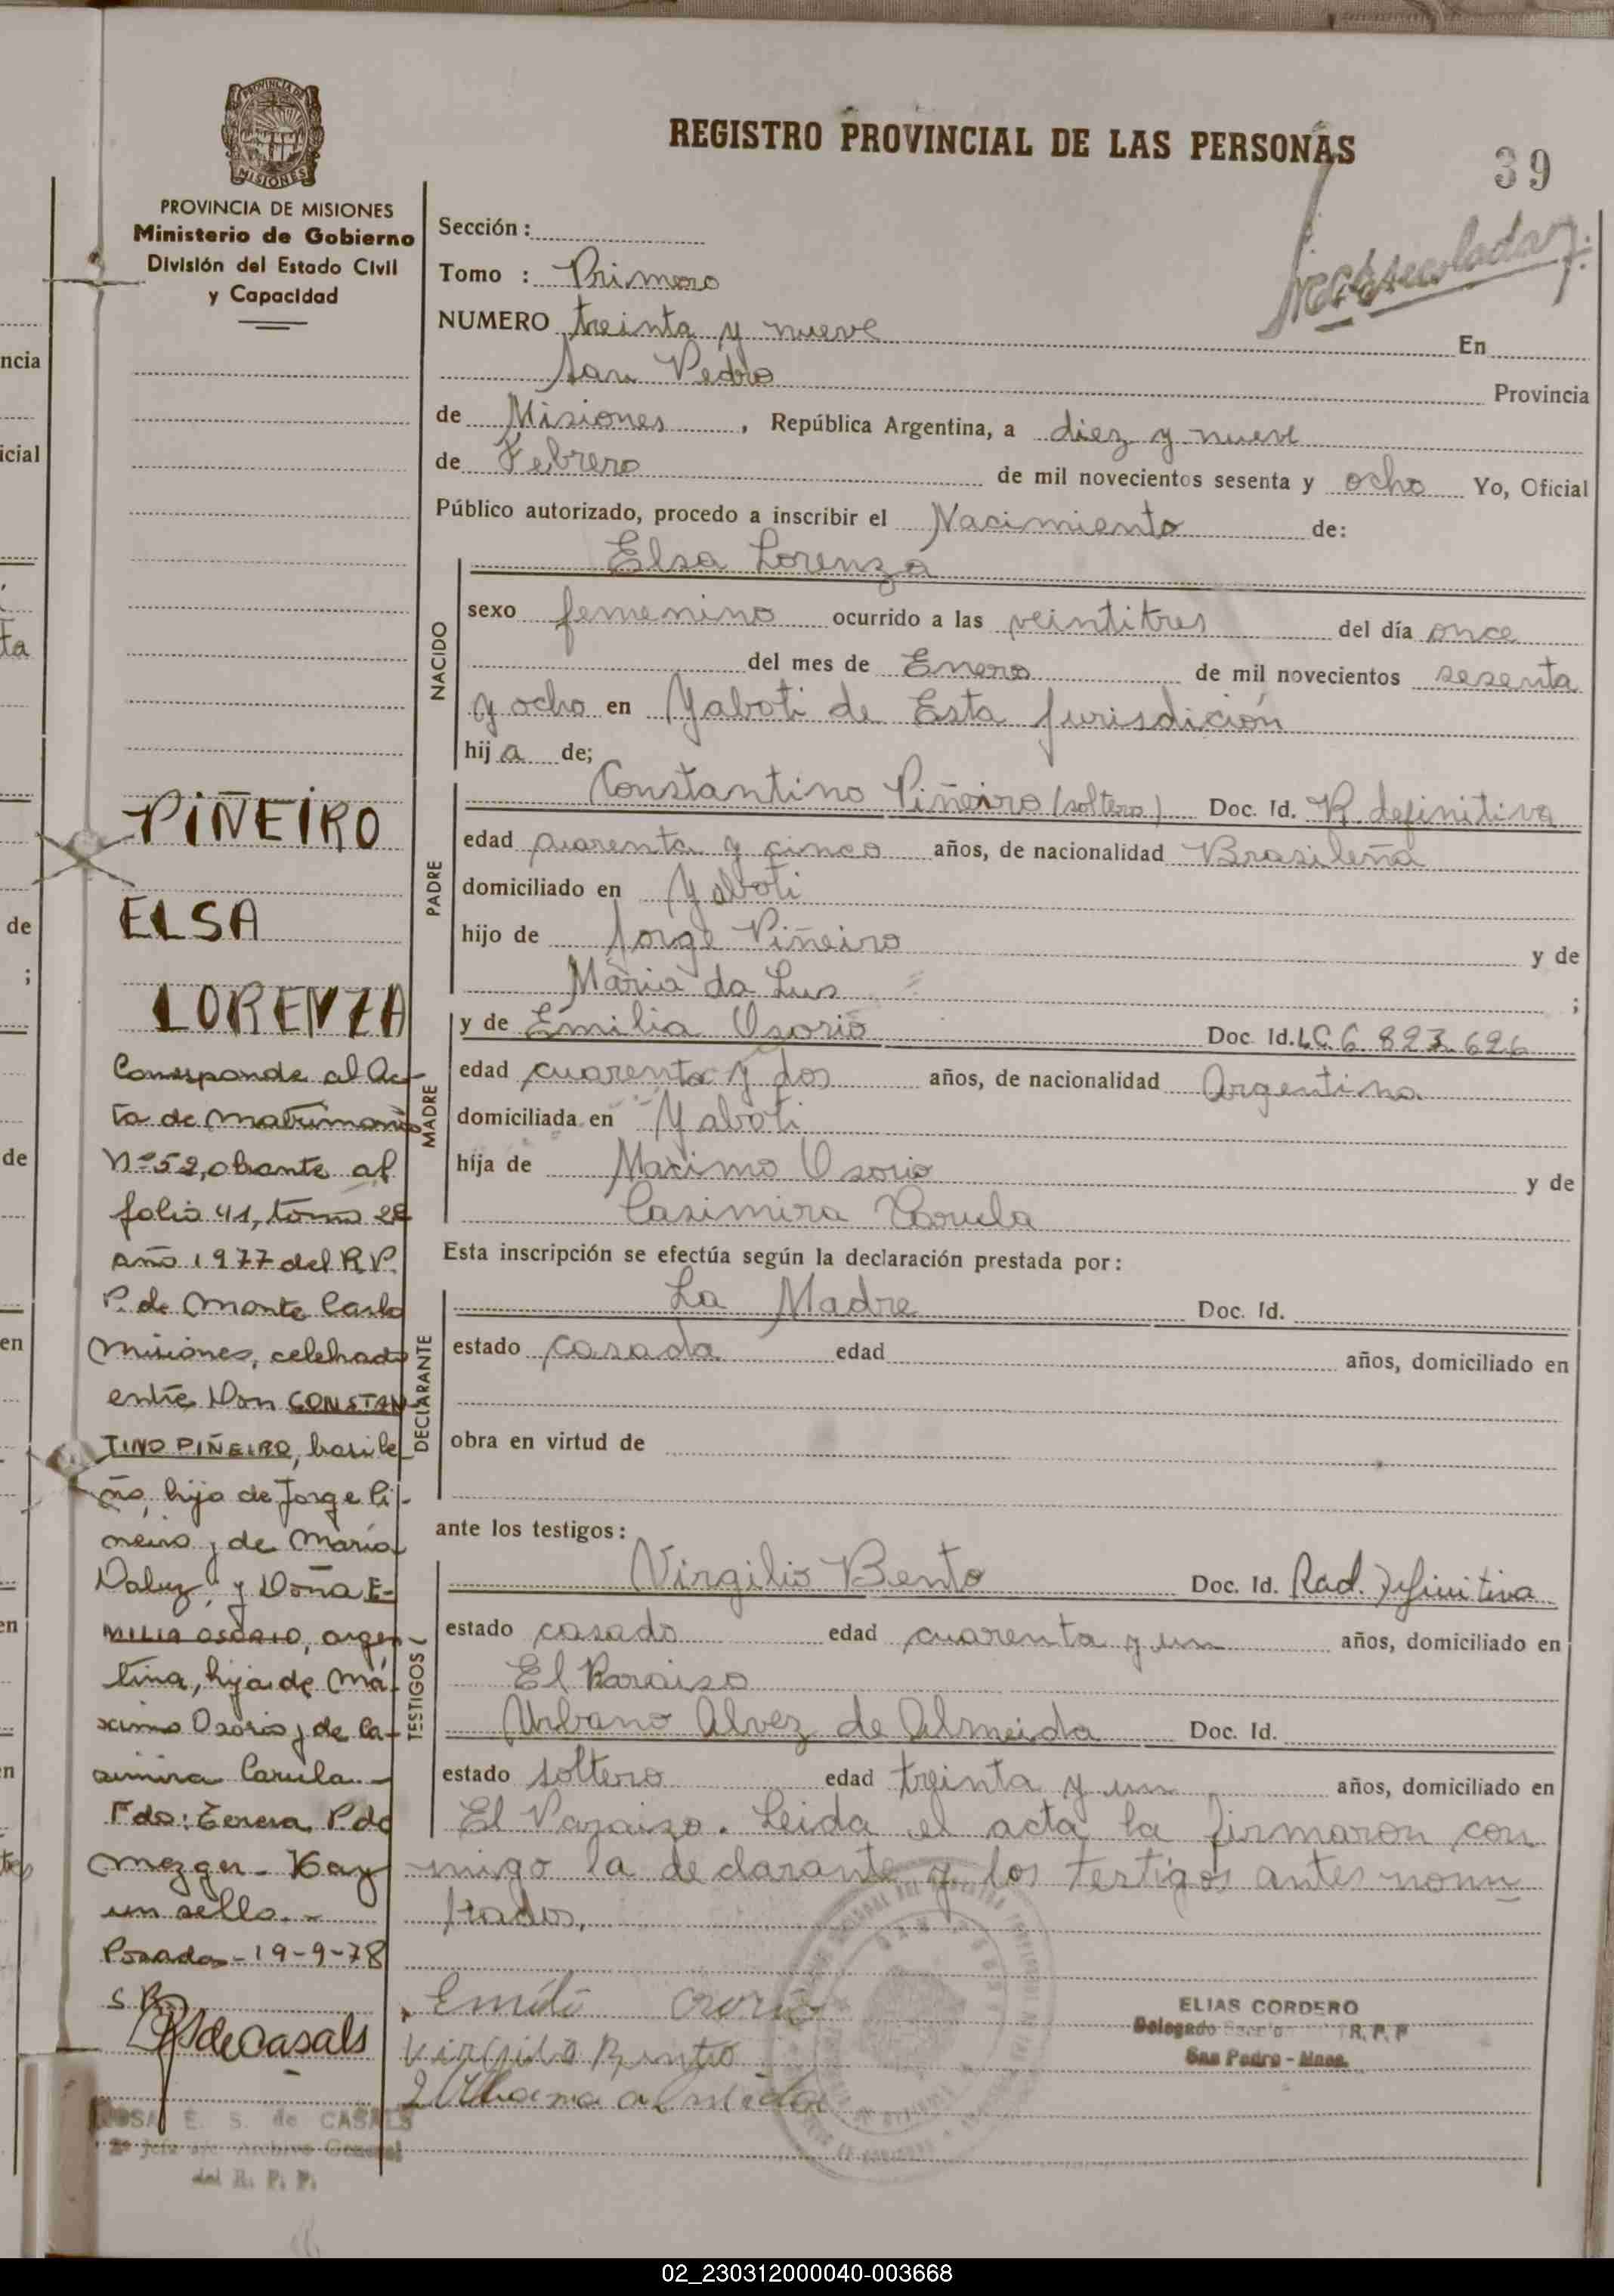 REGISTRO PROVINCIAL DE LAS PERSONAS
39
PROVINCIA DE
MISIONES
PROVINCIA DE MISIONES
Ministerio de Gobierno
División del Estado Civil
y Capacidad
Sección :
Tomo : Primero
NUMERO treinta y nueve En
San Pedro Provincia
de Misiones , República Argentina, a diez y nueve
de Febrero de mil novecientos sesenta y ocho Yo, Oficial
Público autorizado, procedo a inscribir el Nacimiento de:
Elsa Lorenza
NACIDO
sexo femenino ocurrido a las veintitres del día once
del mes de Enero de mil novecientos sesenta
y ocho en Yaboti de Esta jurisdición
hij a de;
PADRE
Constantino Piñeiro (soltero) Doc. Id. R. definitiva
edad cuarenta y cinco años, de nacionalidad Brasileña
domiciliado en Yaboti
hijo de Jorge Piñeiro y de
Maria da Lus ;
MADRE
y de Emilia Osorio Doc. Id. LC 6 823 626
edad cuarenta y dos años, de nacionalidad Argentina
domiciliada en Yaboti
hija de Maximo Osorio y de
Casimira Carula
Esta inscripción se efectúa según la declaración prestada por:
DECLARANTE
La Madre Doc. Id.
estado casada edad años, domiciliado en
obra en virtud de
ante los testigos:
TESTIGOS
Virgilio Bento Doc. Id. Rad. Definitiva
estado casado edad cuarenta y un años, domiciliado en
El Paraiso
Urbano Alvez de Almeida Doc. Id.
estado soltero edad treinta y un años, domiciliado en
El Paraizo. Leida el acta la firmaron con
migo la declarante y los testigos antes nomm
brados.
Emili Osorio
Virgilio Bento
Urbano almeida
ELIAS CORDERO
Delegado R. P. P
San Pedro - Mnes.
PIÑEIRO
ELSA
LORENZA
Corresponde al Ac-
ta de matrimonio
Nº 52, obrante al
folio 41, tomo 2º
año 1977 del R.P.
P. de Monte Carlo
Misiones, celebrado
entre Don CONSTAN
TINO PIÑEIRO, brasile
ño, hijo de Jorge Pi-
ñeiro y de María
Daluz, y Doña E-
MILIA OSORIO, argen-
tina, hija de Má-
ximo Osorio y de Ca-
simira Carula.-
Fdo: Teresa P. de
Mezger - Hay
un sello.-
Posadas - 19-9-78
S R
de Casals
ROSA E. S. de CASALS
2º Jefe Archivo General
del R. P. P.
ncia
icial
ta
de
;
de
en
en
en
02_230312000040-003668